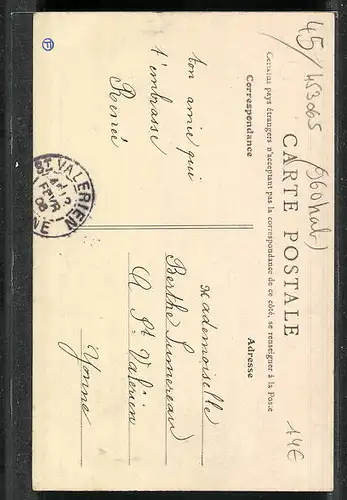 CARTE POSTALE
Certains pays étrangers n'acceptant pas la correspondance de ce côté, se renseigner à la Poste
Correspondance
Adresse
ton amie qui
t'embrasse
Renée
Mademoiselle
Berthe Lumereau
A St Valérien
Yonne
ST VALERIEN
FEVR
08
45/
453065
(960 hab)
14€